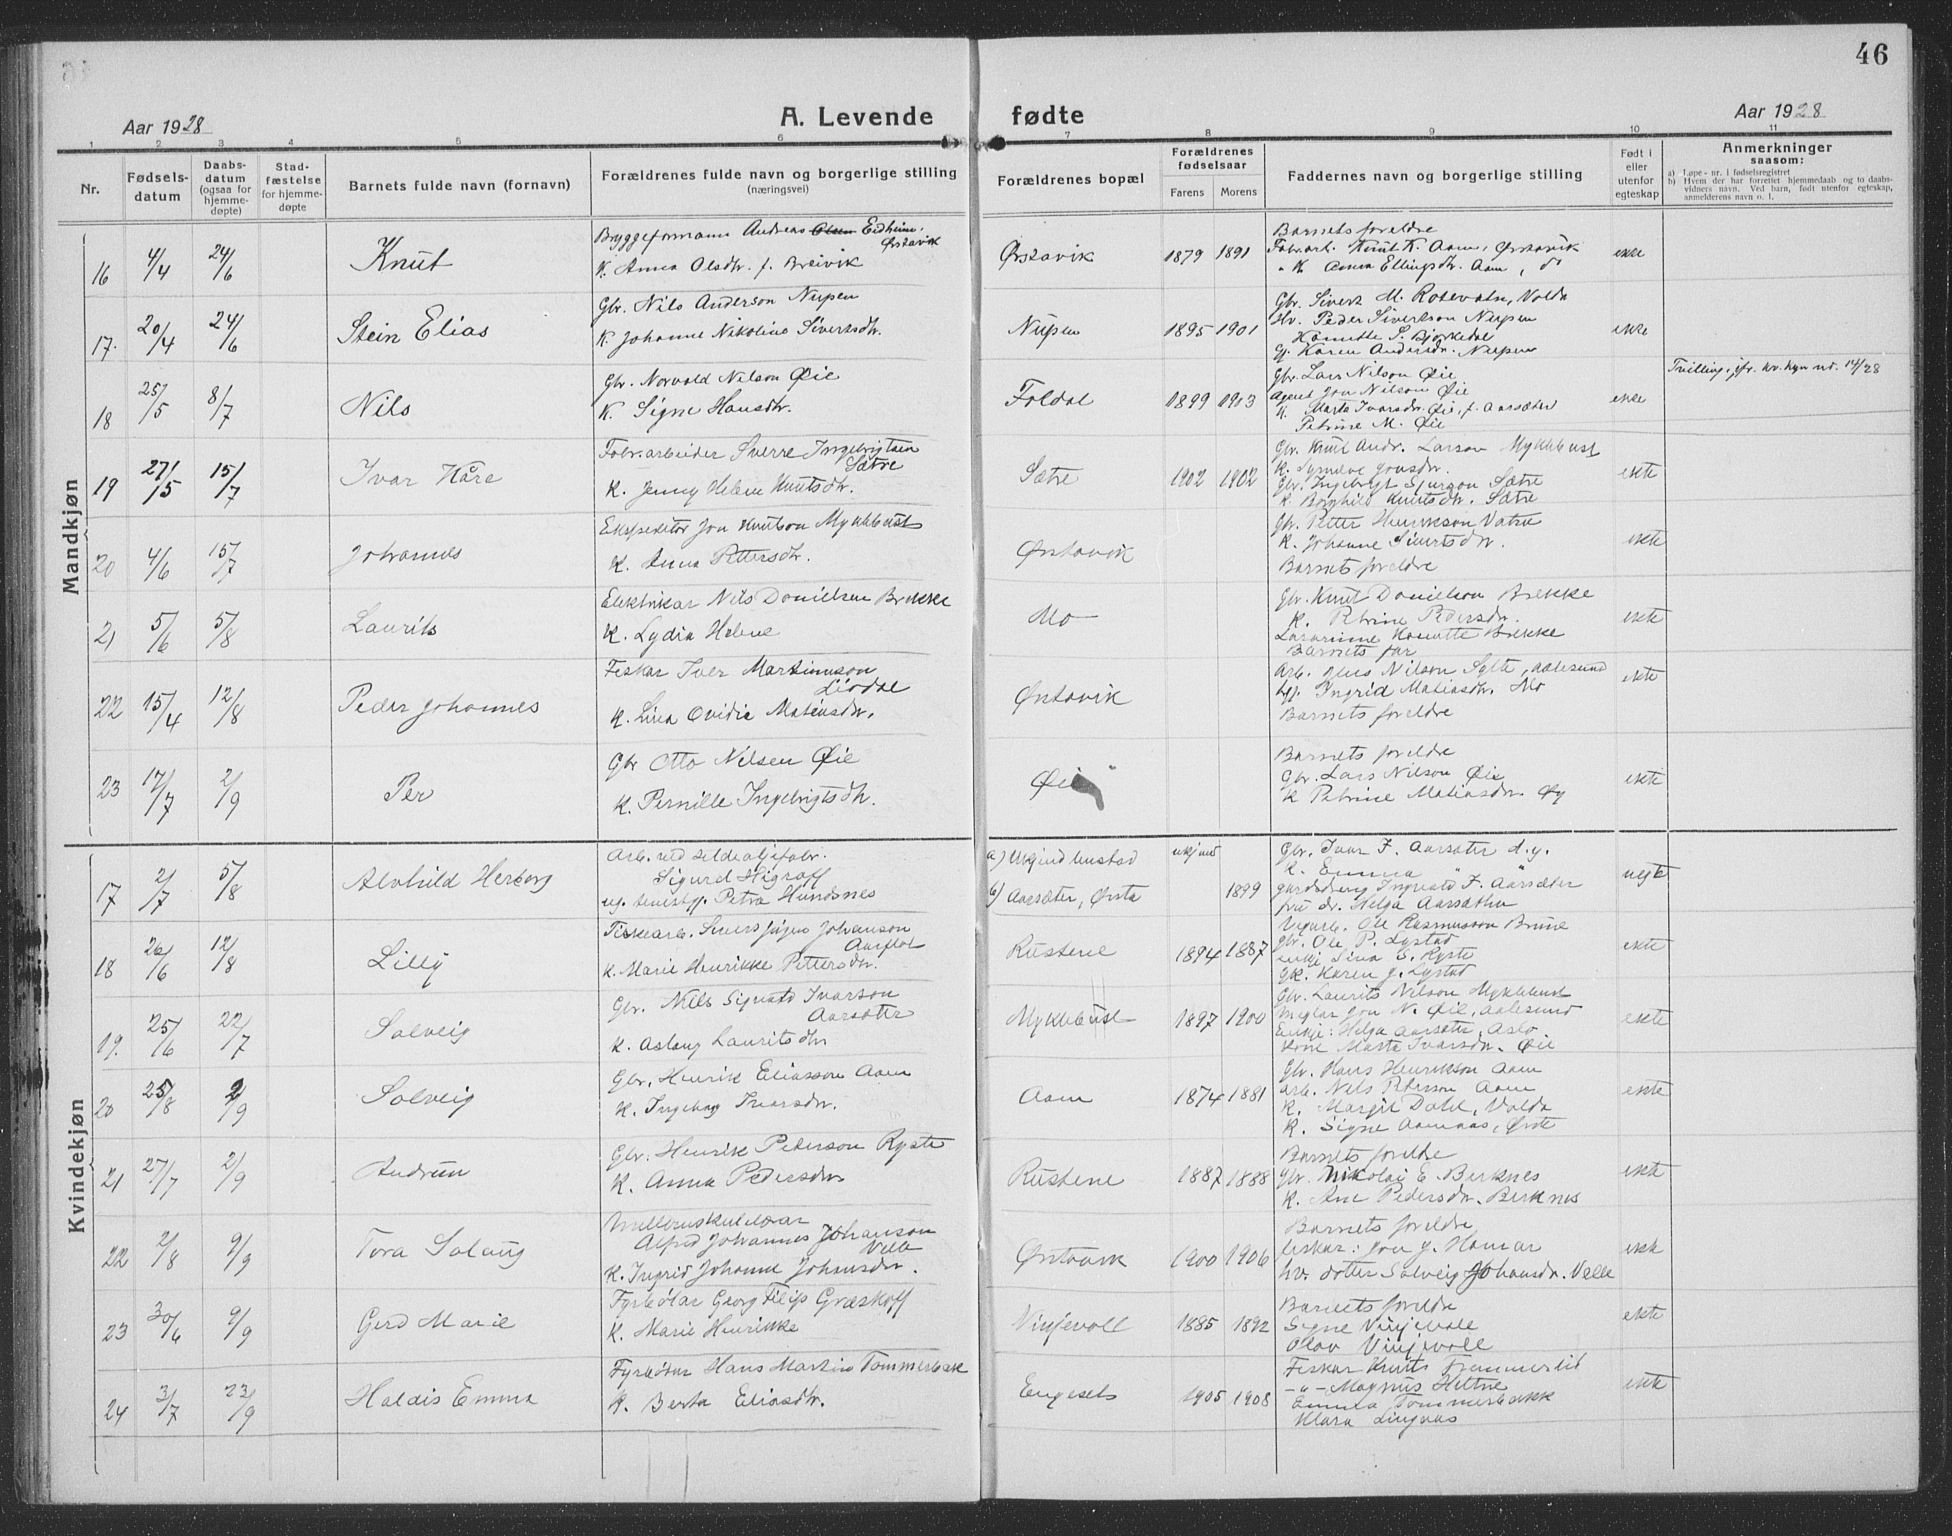 46
Aar 1928
A. Levende
fødte
Aar 1928
1 2 3 4 5 6 7 8 9 10 11
Nr.
Fødsels-
datum
Daabs-
datum
(ogsaa for
hjemme-
døpte)
Stad-
fæstelse
for hjemme-
døpte
Barnets fulde navn (fornavn)
Forældrenes fulde navn og borgerlige stilling
(næringsvei)
Forældrenes bopæl
Forældrenes
fødselsaar
Farens Morens
Faddernes navn og borgerlige stilling
Født i
eller
utenfor
egteskap
Anmerkninger
saasom:
a) Løpe-nr. i fødselsregistret
b) Hvem der har forrettet hjemmedaab og to daabs-
vidners navn. Ved barn, født utenfor egteskap,
anmelderens navn o. l.
Mandkjøn
16 4/4 24/6 Knut
Byggeformann Andreas Olsen Eidheim,
Ørstavik
K. Anna Olsdtr. f. Breivik
Ørstavik 1879 1891
Barnets foreldre
Fabr.arb. Knut K. Aam, Ørstavik
" K Anna Ellingsdtr. Aam, do
ekte
17. 20/4 24/6 Stein Elias
Gbr. Nils Anderson Nupen
K. Johanne Nikoline Sivertsdtr.
Nupen 1895 1901
Gbr. Sivert M. Rotevatn, Volda
Hv. Peder Sivertson Nupen
Hanette S. Bjørkedal
Gj. Karen Andersdr. Nupen
ekte
18 25/5 8/7 Nils
Gbr. Norvald Nilson Øie
K. Signe Hansdtr.
Foldal 1899 1903
Gbr. Lars Nilson Øie
Agent Jon Nilson Øie
K. Marta Ivarsdr. Øie, f. Aarsæter
Petrine M. Øie
ekte
Tvilling, jfr. kv.kyn nr. 14/28
19 27/5 15/7 Ivar Kåre
Fabr.arbeider Sverre Ingebrigtsen
Sætre
K. Jenny Helene Knutsdtr.
Sætre 1902 1902
Gbr. Knut Andr. Larson Myklebust
K. Synnøve Jonsdr.
Gbr. Ingebrigt Sjurson Sætre
K Borghild Knutsdtr. Sætre
ekte
20 4/6 15/7 Johannes
Ekspeditør Jon Knutson Myklebust
K. Anna Pettersdtr.
Ørstavik
Gbr. Petter Henrikson Vatne
K. Johanne Sivertsdr.
Barnets foreldre
ekte
21 5/6 5/8 Laurits
Elektrikar Nils Danielsen Brekke
K. Lydia Helene
Mo
Gbr. Knut Danielson Brekke
K. Petrine Pedersdr.
Lærarinne Hanette Brekke
Barnets far
ekte
22 15/4 12/8 Peder Johannes
Fiskar Iver Martinusson
Lisdal
K. Lina Ovidie Matiasdtr.
Ørstavik
Arb. Jens Nilson Sylte, Aalesund
Gj. Ingrid Matiasdtr. Mo
Barnets foreldre
ekte
23 17/7 2/9 Per
Gbr Otto Nilsen Øie
K. Pernille Ingebrigtsdtr.
Øie
Barnets foreldre
Gbr. Lars Nilson Øie
K Petrine Matiasdr. Øy
ekte
Kvindekjøn
17 2/7 5/8 Alvhild Herborg
Arb. ved sildeoljefabr.
Sigurd Higraff
ug. tenestgj. Petra Hundsnes
a) Ukjend bustad ukjend
b) Aarsæter, Ørsta 1899
Gbr. Ivar F. Aarsæter d.y.
K. Emma "
Gardsdreng Ingvald F. Aarsæter
Fru dr. Helga Aarsæther
uegte
18 26/6 12/8 Lilly
Fiskearb. Sivers Jørgen Johanson
Aarflot
K. Marie Henrikke Pettersdtr.
Rustene 1894 1887
Vegarb. Ole Rasmusson Brune
Gbr. Ole P. Lystad
Enkje Lina E. Ryste
Gk. Karen J. Lystad
ekte
19. 25/6 22/7 Solveig
Gbr. Nils Sigvald Ivarson
Aarsæter
K. Aslaug Lauritsdtr
Myklebust 1897 1900
Gbr. Laurits Nilson Myklebust
Meglar Jon N. Øie, Aalesund
Enkje: Helga Aarsæter, Aslo.
Kone Marta Ivarsdtr. Øie
ekte
20 25/8 2/9 Solveig
Gbr. Henrik Eliasson Aam
K. Ingeborg Ivarsdr.
Aam 1874 1881
Gbr. Hans Henrikson Aam
Arb. Nils Peterson Aam
K. Margit Dahl, Volda
K. Signe Aamaas, Ørsta
ekte
21 27/7 2/9 Gudrun
Gbr. Henrik Pederson Ryste
K. Anna Pedersdr
Rustene 1887 1888
Barnets foreldre
Gbr. Nikolai E. Berknes
K. Ane Pedersdr. Berknes
ekte
22 2/8 9/9 Tora Solaug
Mellomskulelærar
Alfred Johannes Johanson
Velle
K. Ingrid Johanne Johansdr.
Ørstavik 1900 1906
Barnets foreldre
Fiskar: Jon J. Hamar
hv. dotter Solveig Johansdr. Velle
ekte
23 30/6 9/9 Gerd Marie
Fyrbøtar Georg Filip Græskoff
K. Marie Henrikke
Vinjevoll 1885 1892
Barnets foreldre
Signe Vinjevoll
Olav Vinjevoll
ekte
24 3/7 23/9 Haldis Emma
Fyrbøtar Hans Martin Tommerbakk
K. Berta Eliasdtr.
Engeset 1905 1908
Fiskar Knut Frammerlid
-"- Magnus Heltne
Emma Tommerbakk
Klara Lingaas
ekte